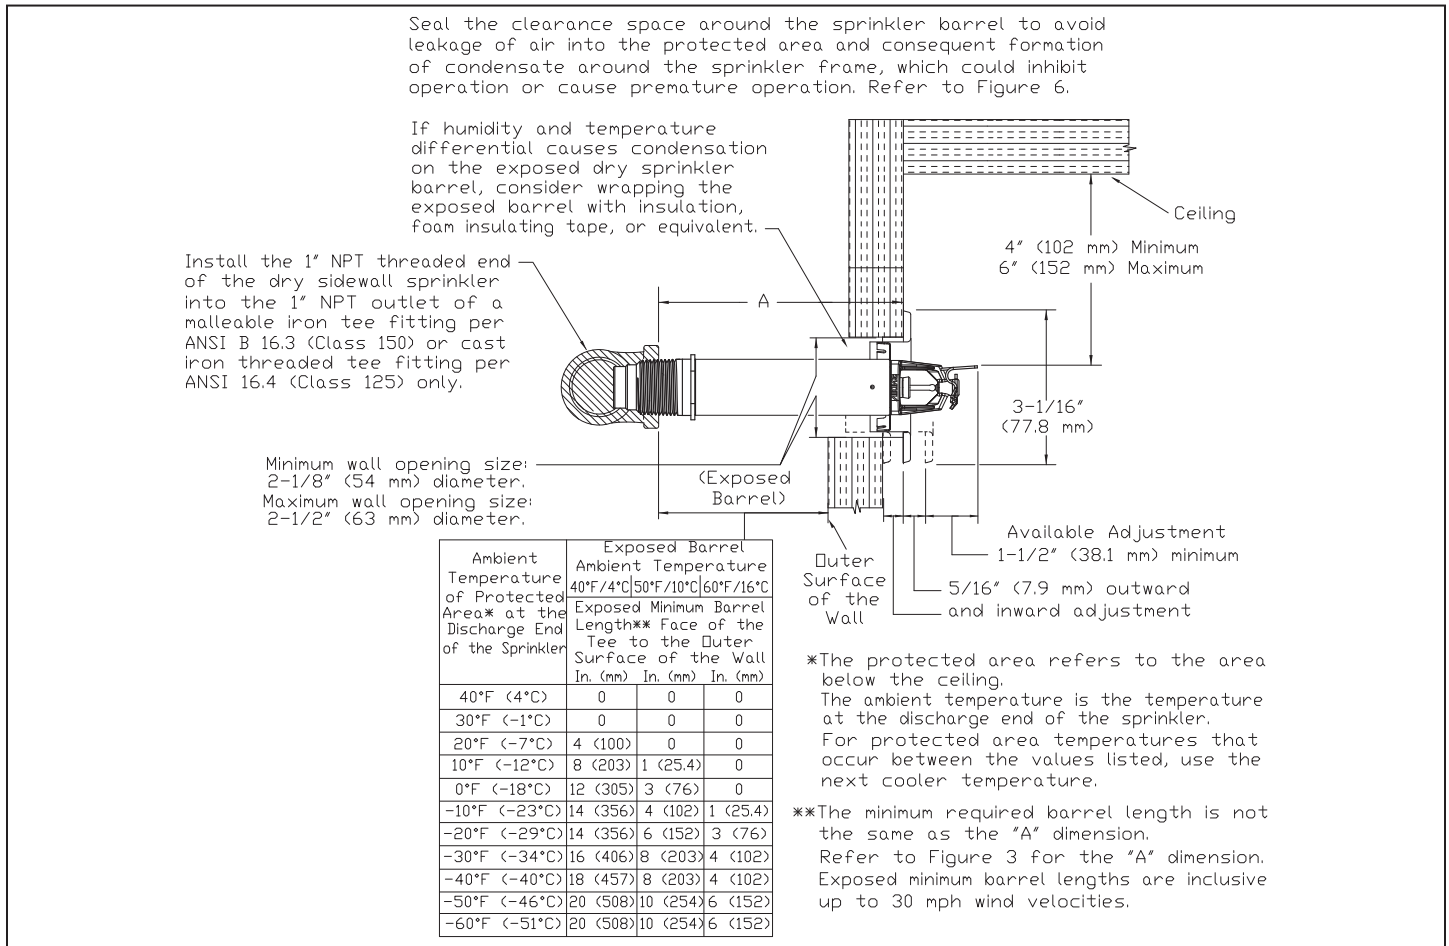 Seal the clearance space around the sprinkler barrel to avoid
leakage of air into the protected area and consequent formation
of condensate around the sprinkler frame, which could inhibit
operation or cause premature operation. Refer to Figure 6.
If humidity and temperature
differential causes condensation
on the exposed dry sprinkler
barrel, consider wrapping the
exposed barrel with insulation,
foam insulating tape, or equivalent.
Ceiling
4" (102 mm) Minimum
6" (152 mm) Maximum
Install the 1" NPT threaded end
of the dry sidewall sprinkler
into the 1" NPT outlet of a
malleable iron tee fitting per
ANSI B 16.3 (Class 150) or cast
iron threaded tee fitting per
ANSI 16.4 (Class 125) only.
A
3-1/16"
(77.8 mm)
Minimum wall opening size:
2-1/8" (54 mm) diameter.
Maximum wall opening size:
2-1/2" (63 mm) diameter.
(Exposed
Barrel)
Available Adjustment
1-1/2" (38.1 mm) minimum
5/16" (7.9 mm) outward
and inward adjustment
Outer
Surface
of the
Wall
Ambient
Temperature
of Protected
Area* at the
Discharge End
of the Sprinkler
Exposed Barrel
Ambient Temperature
40°F/4°C 50°F/10°C 60°F/16°C
Exposed Minimum Barrel
Length** Face of the
Tee to the Outer
Surface of the Wall
In. (mm) In. (mm) In. (mm)
40°F (4°C) 0 0 0
30°F (-1°C) 0 0 0
20°F (-7°C) 4 (100) 0 0
10°F (-12°C) 8 (203) 1 (25.4) 0
0°F (-18°C) 12 (305) 3 (76) 0
-10°F (-23°C) 14 (356) 4 (102) 1 (25.4)
-20°F (-29°C) 14 (356) 6 (152) 3 (76)
-30°F (-34°C) 16 (406) 8 (203) 4 (102)
-40°F (-40°C) 18 (457) 8 (203) 4 (102)
-50°F (-46°C) 20 (508) 10 (254) 6 (152)
-60°F (-51°C) 20 (508) 10 (254) 6 (152)
*The protected area refers to the area
below the ceiling.
The ambient temperature is the temperature
at the discharge end of the sprinkler.
For protected area temperatures that
occur between the values listed, use the
next cooler temperature.
**The minimum required barrel length is not
the same as the "A" dimension.
Refer to Figure 3 for the "A" dimension.
Exposed minimum barrel lengths are inclusive
up to 30 mph wind velocities.